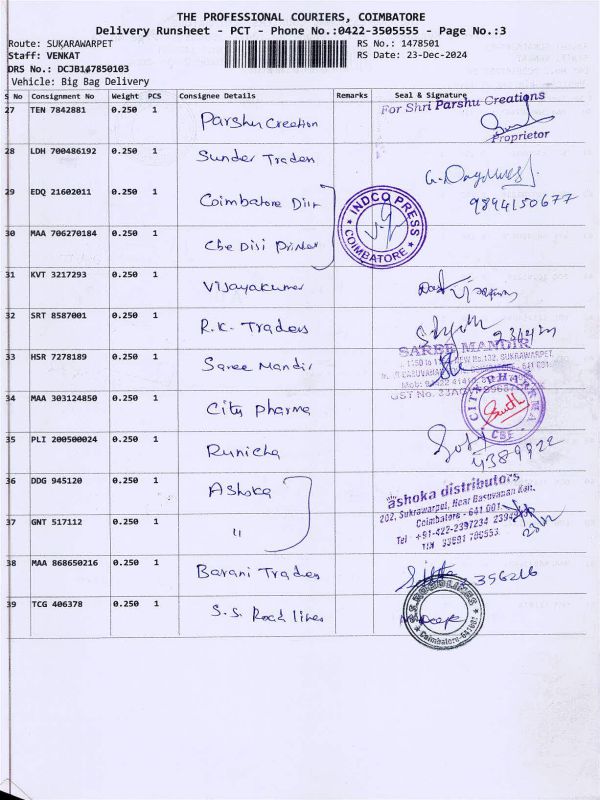 THE PROFESSIONAL COURIERS, COIMBATORE
Delivery Runsheet - PCT - Phone No.:0422-3505555 - Page No.:3
Route: SUKARAWARPET
RS No.: 1478501
Staff: VENKAT
RS Date: 23-Dec-2024
DRS No.: DCJB147850103
Vehicle: Big Bag Delivery
S No Consignment No Weight PCS Consignee Details Remarks Seal & Signature
27 TEN 7842881 0.250 1 Parshu Creation
For Shri Parshu Creations
Proprietor
28 LDH 700486192 0.250 1 Sunder Traders
9894150677
29 EDQ 21602011 0.250 1 Coimbatore Distr
INDCO PRESS
COIMBATORE
30 MAA 706270184 0.250 1 Cbe Dist Printer
31 KVT 3217293 0.250 1 Vijayakumar
32 SRT 8587001 0.250 1 R.K. Traders
33 HSR 7278189 0.250 1 Saree Mandir
SAREE MANDIR
34 MAA 303124850 1 City Pharma
CITY PHARMA
CBE
35 PLI 200500024 0.250 1 Runicha
36 DDG 945120 0.250 1 Ashoka
ashoka distributors
202, Sukrawarpet, Near Basuvanan Koil,
Coimbatore - 641 001
37 GNT 517112 0.250 1 "
Tel : +91-422-2397234
38 MAA 868650216 0.250 1 Barani Traders
356216
39 TCG 406378 0.250 1 S.S. Road lines
Coimbatore-641001